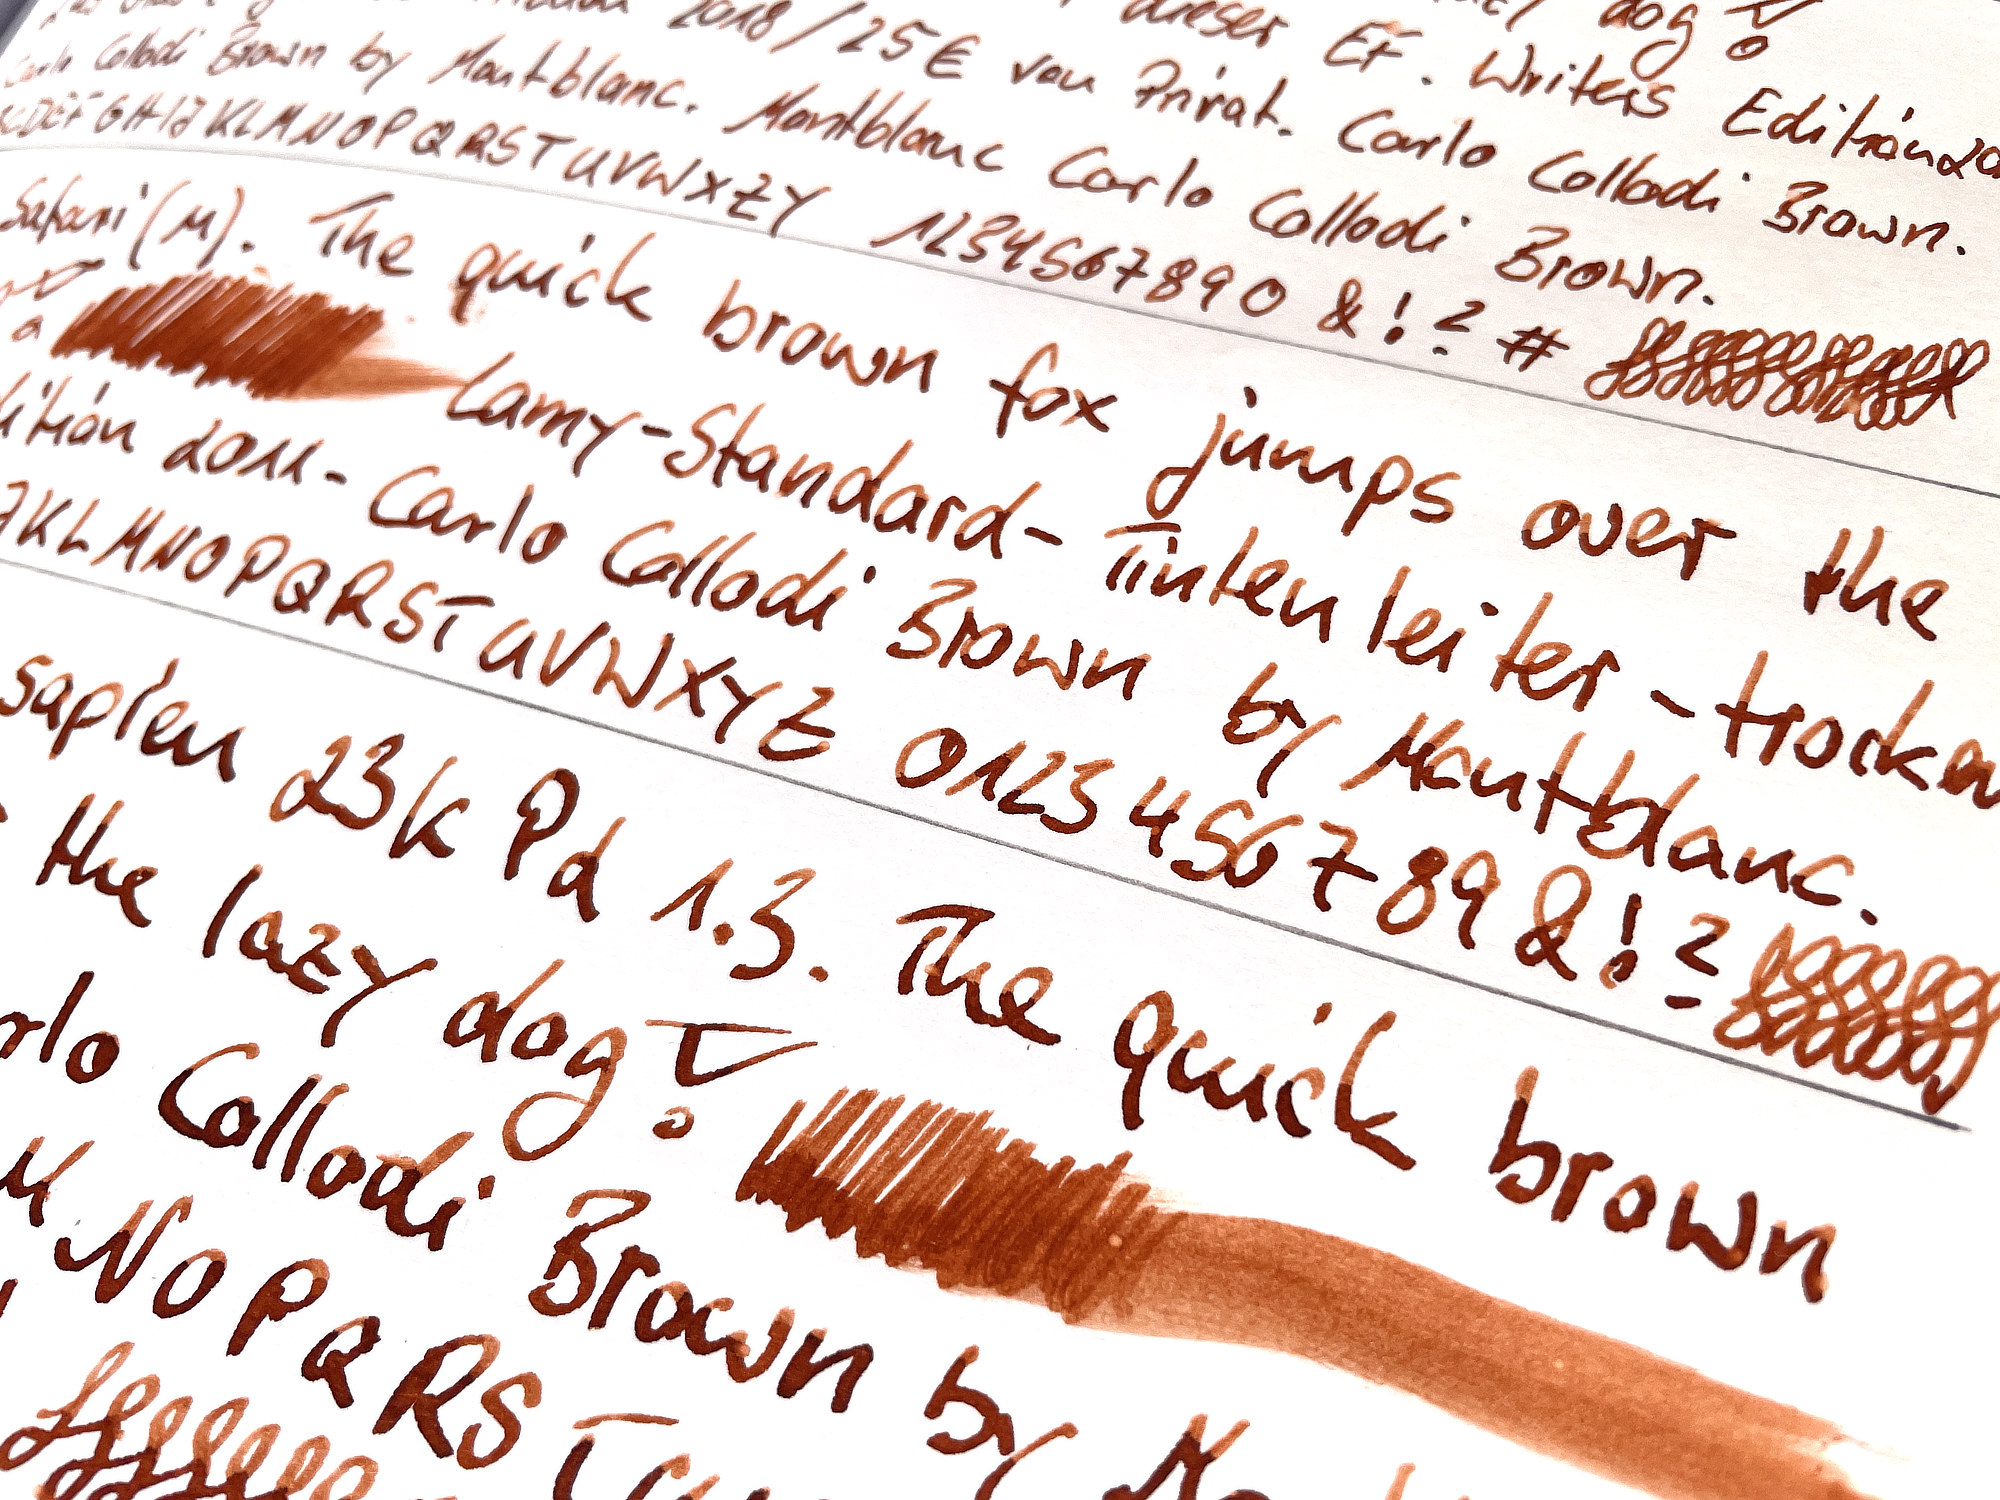 2018/25€ von Privat. Carlo Collodi Brown.
dieser EF. Writers Edition 20
dog!
Carlo Collodi Brown by Montblanc. Montblanc Carlo Collodi Brown.
CDEFGHIJKLMNOPQRSTUVWXZY 1234567890 &!? #
Safari (M). The quick brown fox jumps over the
Lamy-Standard-Tintenleiter-trocken
dition 2011-Carlo Collodi Brown by Montblanc.
JKLMNOPQRSTUVWXYZ 0123456789 &!?
sapien 23k Pd 1.3. The quick brown
the lazy dog!
rlo Collodi Brown by Mont
M NOPQRST